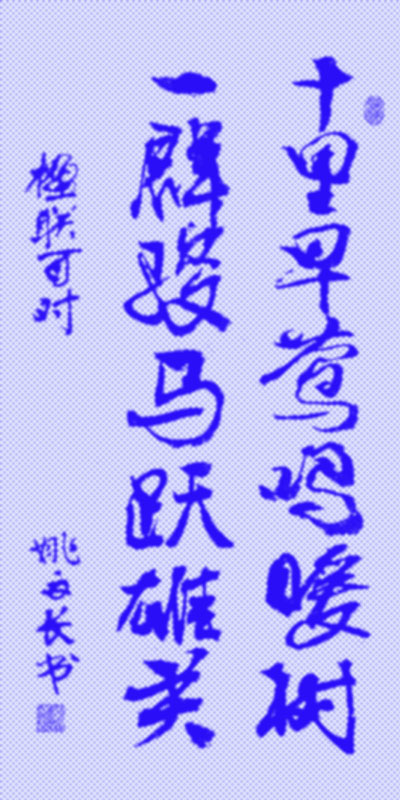 十里早莺鸣暖树
一群骏马跃雄关
楹联
姚长书